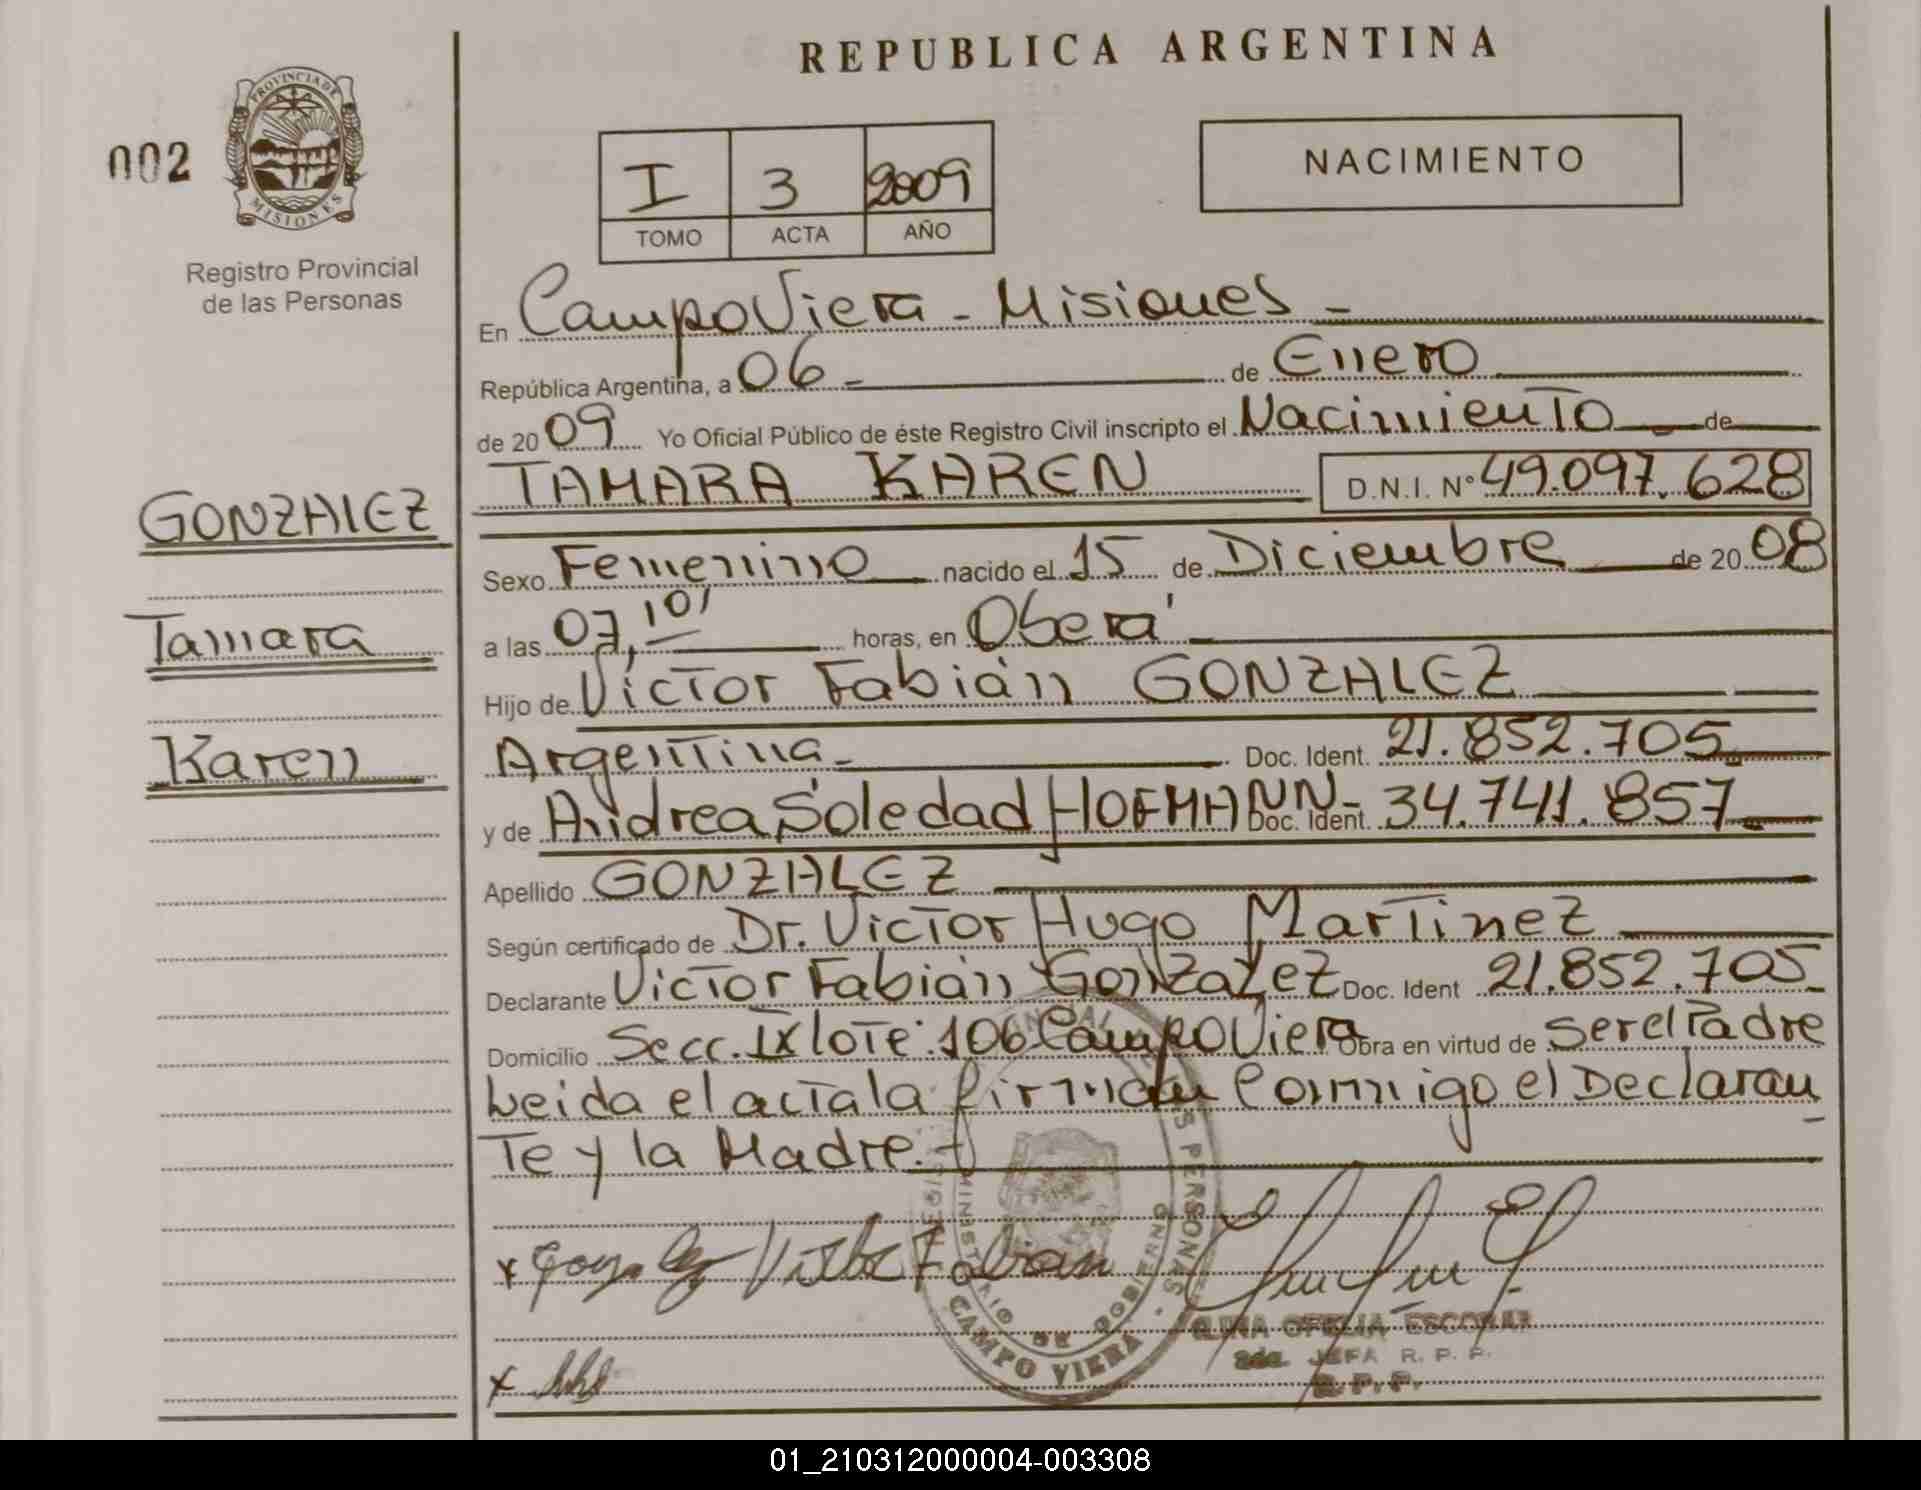 REPUBLICA ARGENTINA
002
PROVINCIA DE
MISIONES
Registro Provincial
de las Personas
I 3 2009
TOMO ACTA AÑO
NACIMIENTO
En Campo Viera - Misiones -
República Argentina, a 06 - de Enero
de 20 09 Yo Oficial Público de éste Registro Civil inscripto el Nacimiento de
TAMARA KAREN D.N.I. Nº 49.097.628
GONZALEZ
Tamara
Karen
Sexo Femenino nacido el 15 de Diciembre de 20 08
a las 07,10' horas, en Oberá -
Hijo de Victor Fabián GONZALEZ
Argentina - Doc. Ident. 21.852.705
y de Andrea Soledad HOFMANN - Doc. Ident. 34.741.857
Apellido GONZALEZ
Según certificado de Dr. Victor Hugo Martinez
Declarante Victor Fabián Gonzalez Doc. Ident 21.852.705
Domicilio Secc. IX lote: 106 Campo Viera Obra en virtud de ser el Padre
Leida el acta la firman conmigo el Declaran
te y la Madre.
x Gonzalez Victor Fabian
PERSONAS
MINISTERIO DE GOBIERNO
CAMPO VIERA
OFELIA ESCOBAR
JEFA R. P. P.
R. P. P.
x
01_210312000004-003308